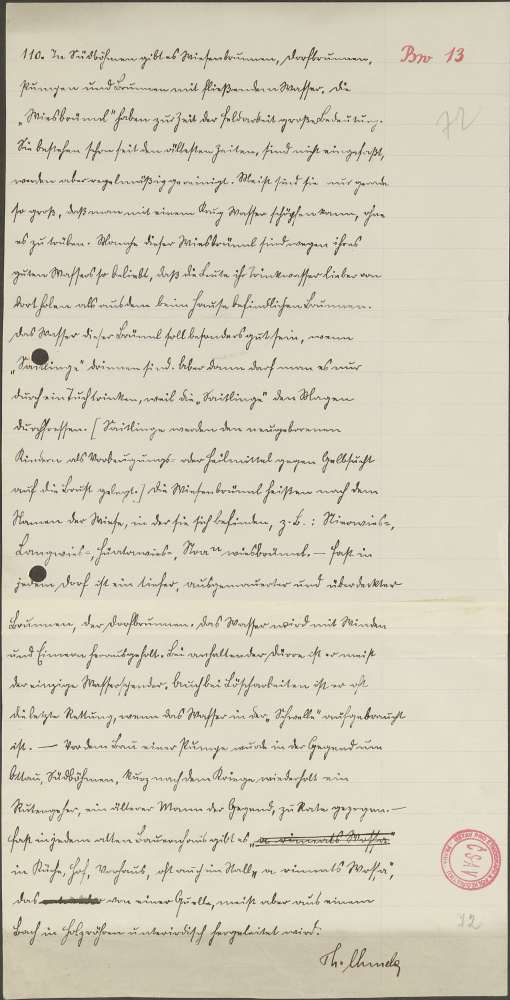 110. In Südböhmen gibt es Wiesenbrunnen, Dorfbrunnen,
Brw 13
Pumpen und Brunnen mit fließendem Wasser. Die
72
„Wiesbrünnl" haben zur Zeit der Feldarbeit große Bedeutung.
Sie bestehen schon seit den ältesten Zeiten, sind nicht eingefaßt,
werden aber regelmäßig gereinigt. Meist sind sie nur gerade
so groß, daß man mit einem Krug Wasser schöpfen kann, ohne
es zu trüben. Manche dieser Wiesbrünnl sind wegen ihres
guten Wassers so beliebt, daß die Leute ihr Trinkwasser lieber von
dort holen als aus dem beim Hause befindlichen Brunnen.
Das Wasser dieser Brünnl soll besonders gut sein, wenn
„Saitlinge" drinnen sind. Aber dann darf man es nur
durch ein Tuch trinken, weil die „Saitlinge" den Magen
durchfressen. [Saitlinge werden den neugeborenen
Kindern als Vorbeugungs- oder Heilmittel gegen Gelbsucht
auf die Brust gelegt.] Die Wiesenbrünnl heißen nach dem
Namen der Wiese, in der sie sich befinden, z.B.:
Langwies-, wiesbrünnl. — Fast in
jedem Dorf ist ein tiefer, ausgemauerter und überdeckter
Brunnen, der Dorfbrunnen. Das Wasser wird mit Winden
und Eimern heraufgeholt. Bei anhaltender Dürre ist er meist
der einzige Wasserspender. Auch bei Löscharbeiten ist er oft
die letzte Rettung, wenn das Wasser in der „Schwelle" aufgebraucht
ist. — Vor dem Bau einer Pumpe wurde in der Gegend um
Ottau, Südböhmen, kurz nach dem Kriege wiederholt ein
Rutengeher, ein älterer Mann der Gegend, zu Rate gezogen. —
Fast in jedem alten Bauernhaus gibt es „a rinnats Wossa"
in Küche, Hof, Vorhaus, oft auch im Stall „a rinnats Wossa",
das von einer Quelle, meist aber aus einem
Bach in Holzröhren unterirdisch hergeleitet wird.
72